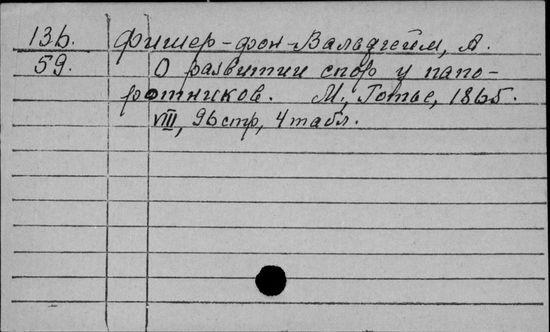 136. Фишер-фон-Вальдгейм, А.
59. О развитии спор у папо-
ротников. М., Готье, 1865.
VIII, 96 стр, 4 табл.